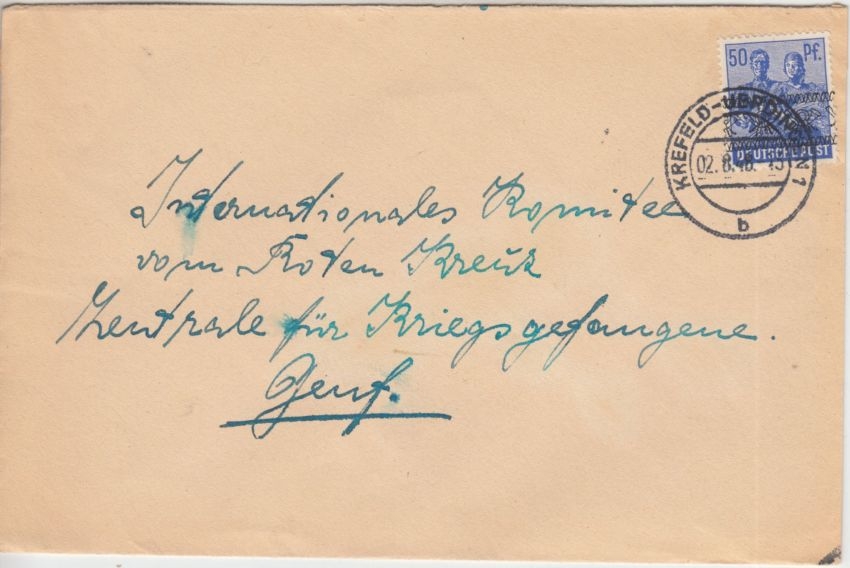 50 Pf.
DEUTSCHE POST
KREFELD-UERDINGEN 1
02.8.48.
b
Internationales Komitee
vom Roten Kreuz
Zentrale für Kriegsgefangene.
Genf.